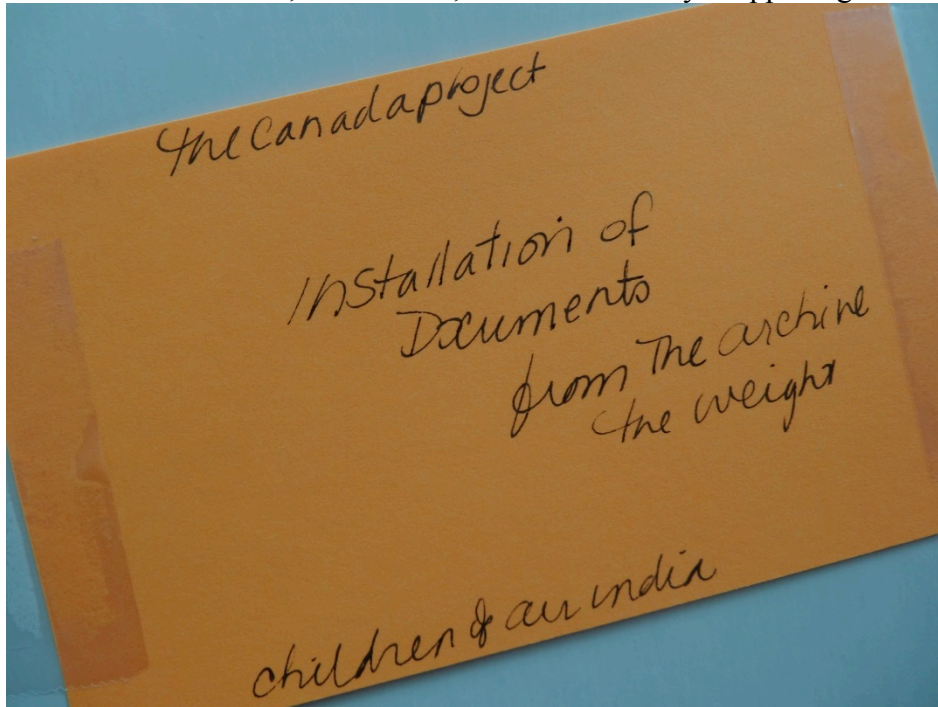 the canadaproject
Installation of
Documents
from The archive
the weight
children of air india